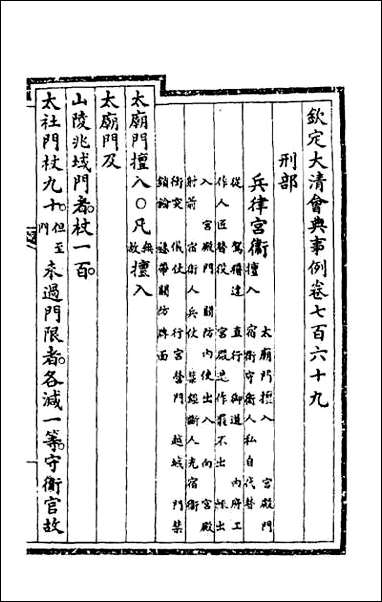 欽定大清會典事例卷七百六十九
刑部
兵律宮衛
太廟門擅入 宮殿門
擅入 宿衛守衛人私自代替
從 駕稽違 直行御道 內府工
作人匠替役 宮殿造作罷不出 輒出
入 宮殿門 關防內使出入 向宮殿
射箭 宿衛人兵仗 禁經斷人充宿衛
衝突 儀仗 行宮營門 越城 門禁
鎖鑰 懸帶關防牌面
太廟門擅入○凡無故擅入
太廟門及
山陵兆域門者杖一百
太社門杖九十但至門未過門限者各減一等守衛官故